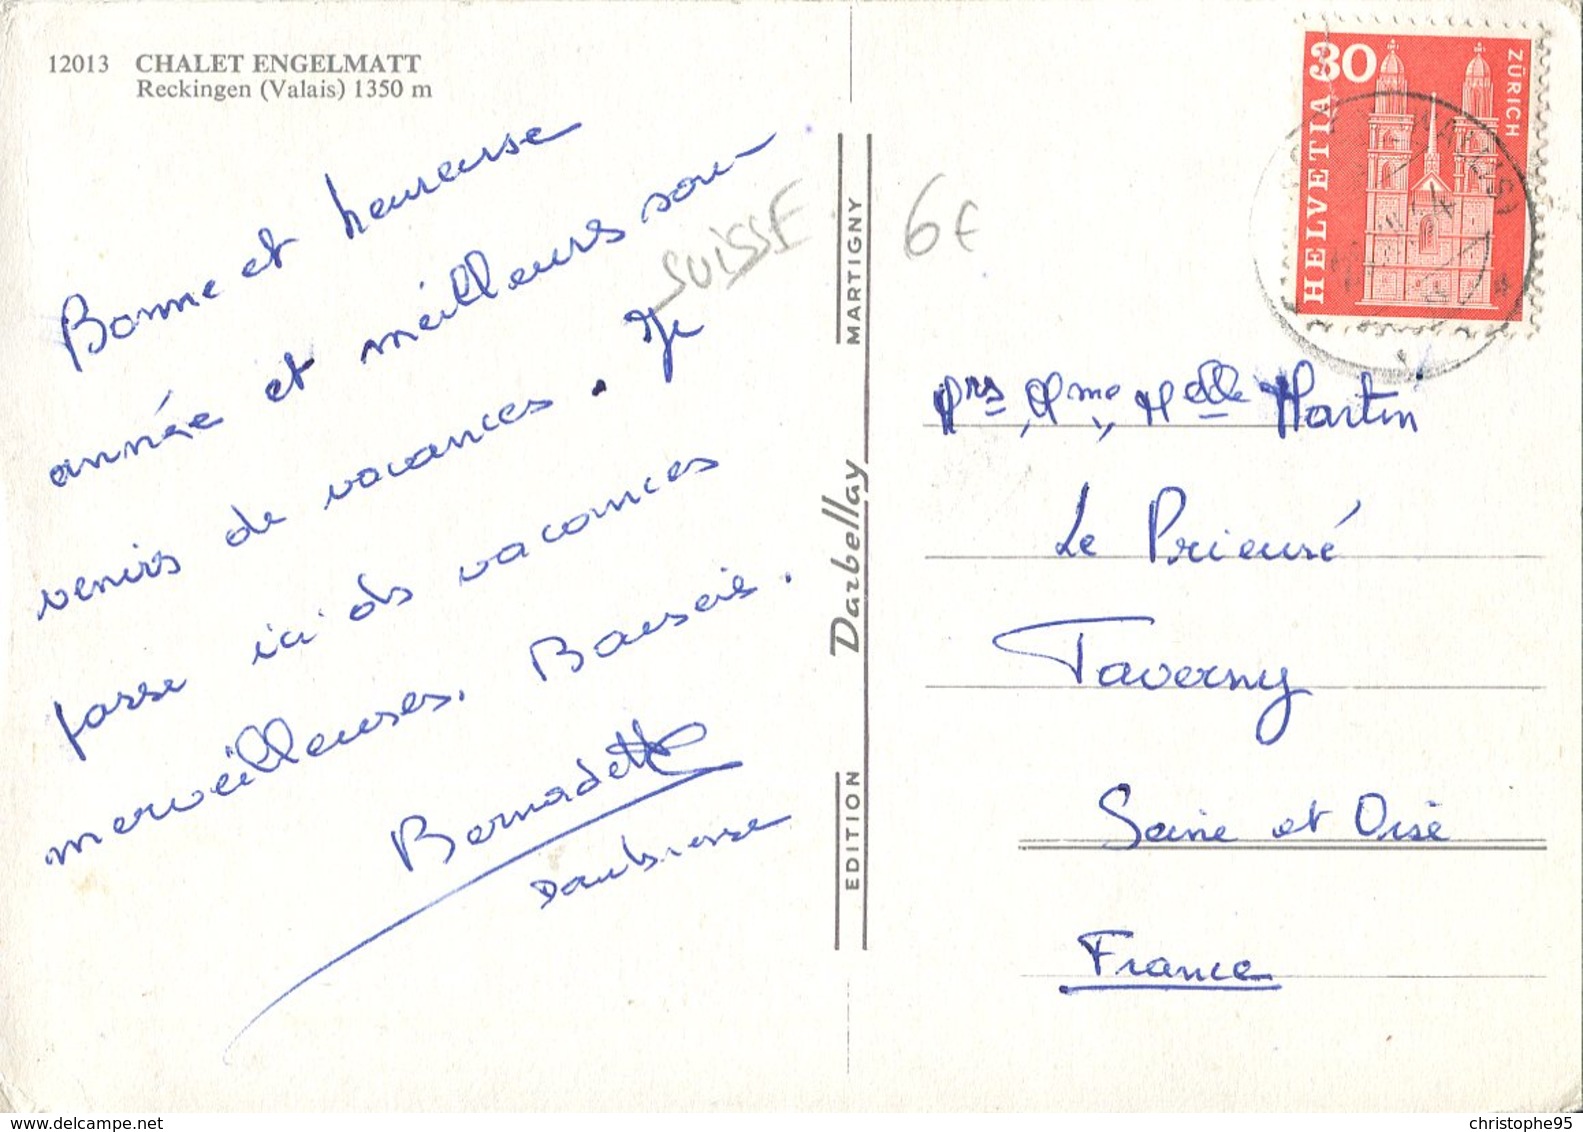 12013 CHALET ENGELMATT
Reckingen (Valais) 1350 m
Bonne et heureuse
année et meilleurs sou-
venirs de vacances. Je
passe ici ds vacances
merveilleuses. Baisers.
Bernadette
SUISSE
6€
EDITION Darbellay MARTIGNY
HELVETIA 30
ZÜRICH
Mrs, Mme, Melle Martin
Le Prieuré
Taverny
Seine et Oise
France
www.delcampe.net
christophe95